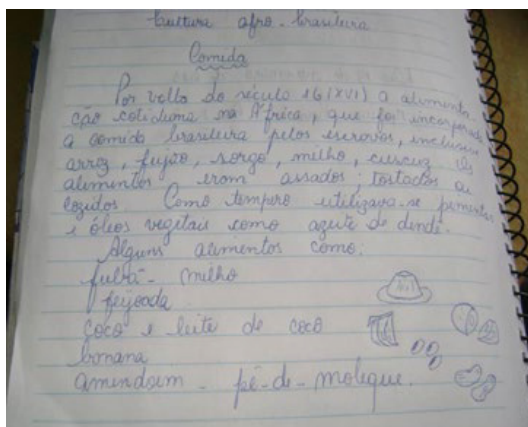 Cultura afro-brasileira
Comida
Por volta do século 16 (XVI) a alimenta
ção cotidiana na África, que foi incorporada
a comida brasileira pelos escravos, inclusive
arroz, feijão, sorgo, milho, cuscuz. Os
alimentos eram assados, tostados ou
cozidos. Como tempero utilizava-se pimentas
e óleos vegetais como azeite de dendê.
Alguns alimentos como:
fubá - milho
feijoada
coco e leite de coco
banana
amendoim - pé-de-moleque.